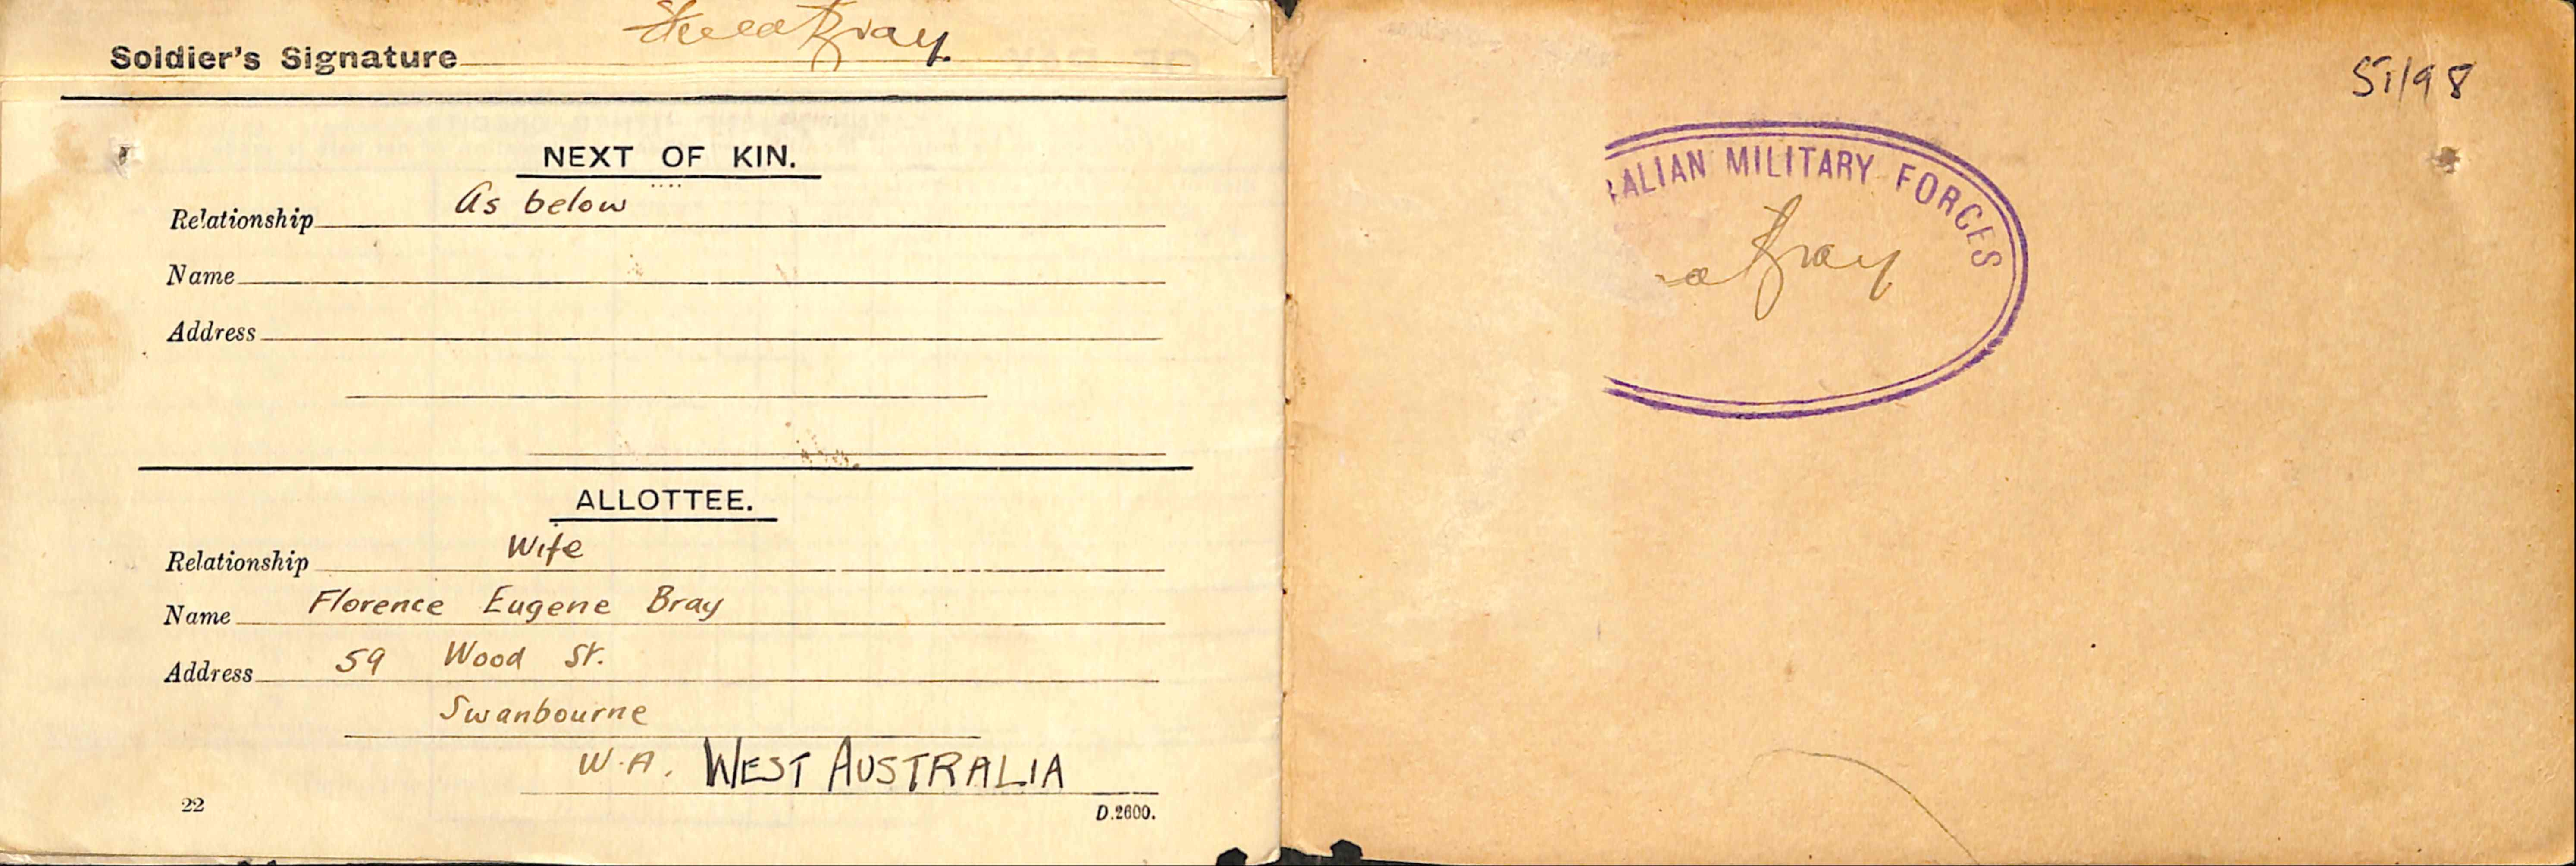 Soldier's Signature Bray
NEXT OF KIN.
Relationship As below
Name
Address
ALLOTTEE.
Relationship Wife
Name Florence Eugene Bray
Address 59 Wood St.
Swanbourne
W.A. WEST AUSTRALIA
22
D.2600.
51/98
RALIAN MILITARY FORCES
a Bray